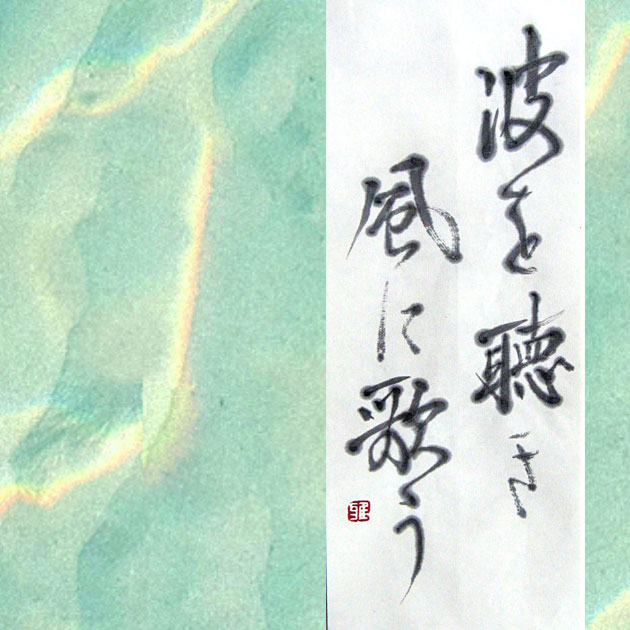 波を聴き
風に歌う